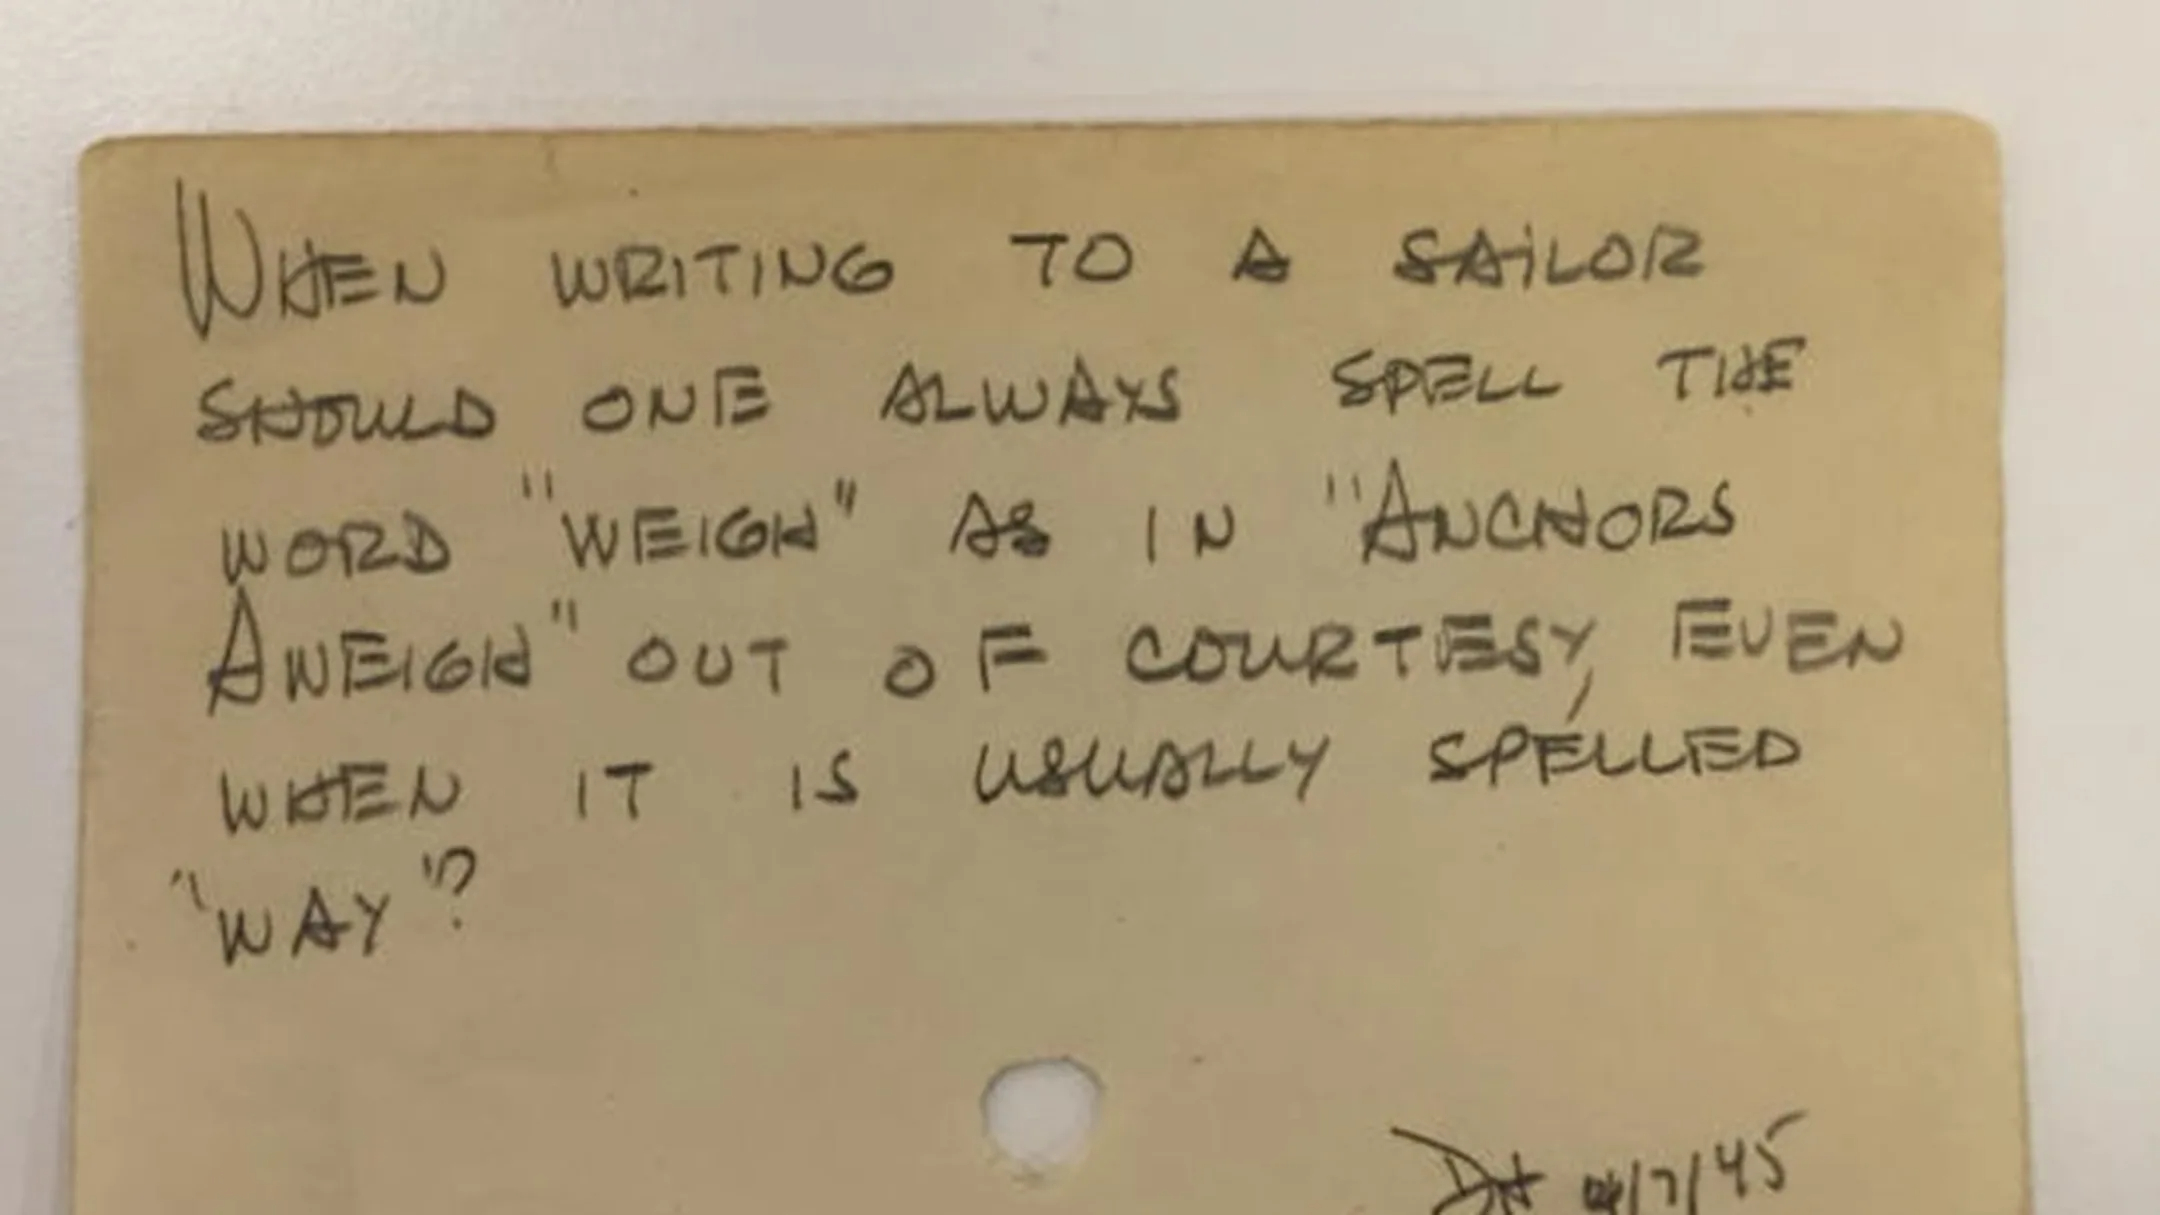 WHEN WRITING TO A SAILOR
SHOULD ONE ALWAYS SPELL THE
WORD "WEIGH" AS IN "ANCHORS
AWEIGH" OUT OF COURTESY, EVEN
WHEN IT IS USUALLY SPELLED
"WAY"?
/7/45